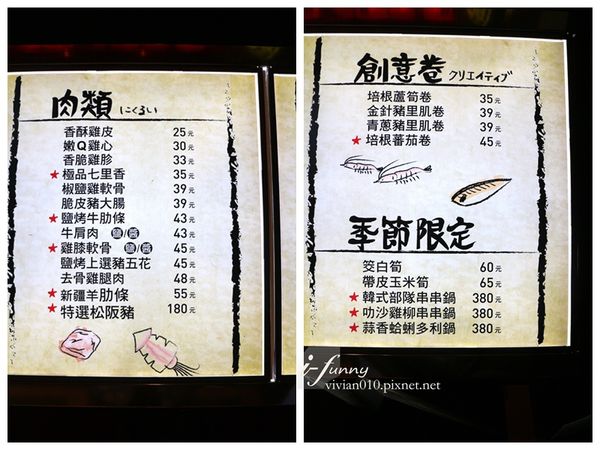 肉類 にくるい
香酥雞皮 25元
嫩Q雞心 30元
香脆雞胗 33元
★極品七里香 35元
椒鹽雞軟骨 39元
脆皮豬大腸 39元
★鹽烤牛肋條 43元
牛肩肉 鹽/醬 43元
★雞膝軟骨 鹽/醬 45元
鹽烤上選豬五花 45元
去骨雞腿肉 48元
★新疆羊肋條 55元
★特選松阪豬 180元
創意卷 クリエイティブ
培根蘆筍卷 35元
金針豬里肌卷 39元
青蔥豬里肌卷 39元
★培根蕃茄卷 45元
季節限定
筊白筍 60元
帶皮玉米筍 65元
★韓式部隊串串鍋 380元
★叻沙雞柳串串鍋 380元
★蒜香蛤蜊多利鍋 380元
i-funny
vivian010.pixnet.net